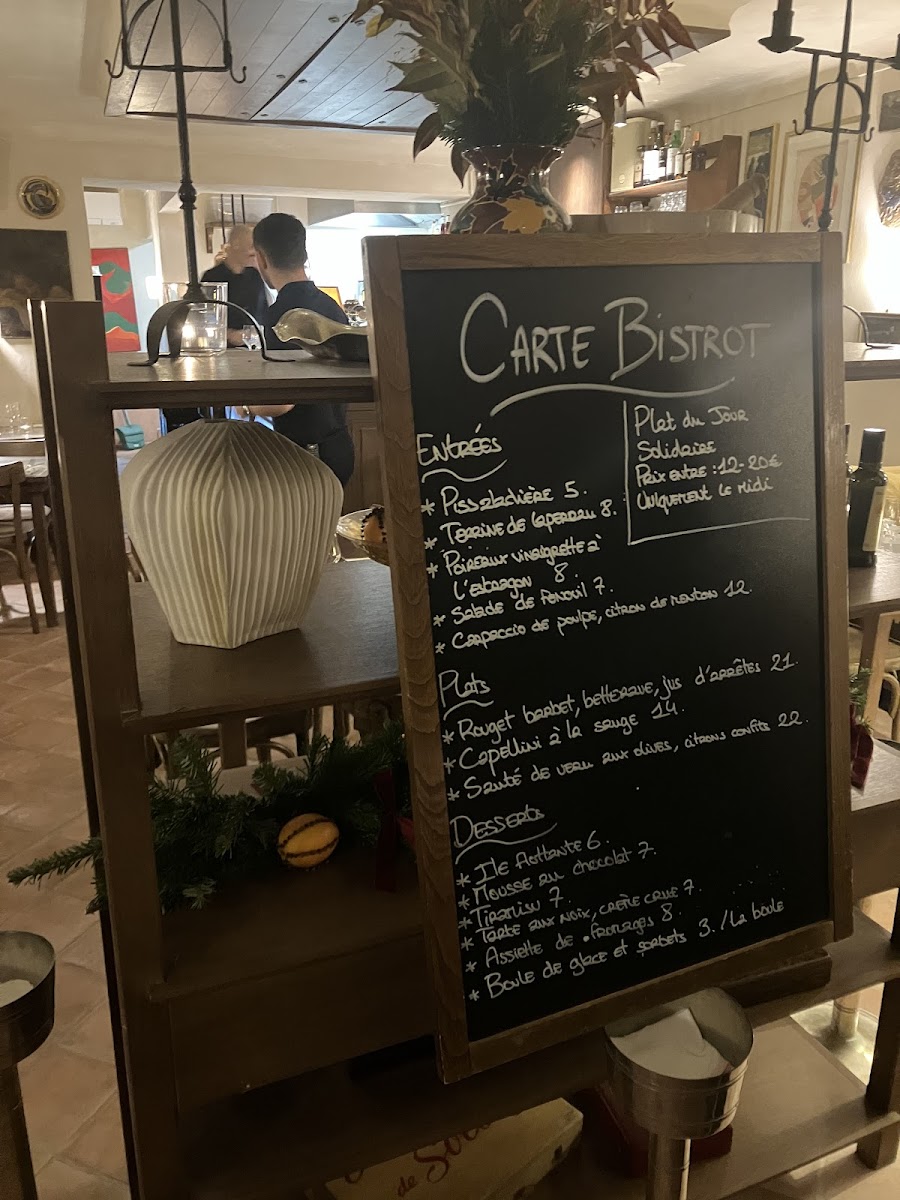 CARTE BISTROT
ENTRÉES
* PISSALADIÈRE 5.
* TERRINE DE LAPEREAU 8.
* POIREAUX VINAIGRETTE À
L'ESTRAGON 8.
* SALADE DE FENOUIL 7.
* CARPACCIO DE POULPE, CITRON DE MENTON 12.
PLAT DU JOUR
SOLIDAIRE
PRIX ENTRE : 12-20€
UNIQUEMENT LE MIDI
PLATS
* ROUGET BARBET, BETTERAVE, JUS D'ARRÊTES 21.
* CAPELLINI À LA SAUGE 14.
* SAUTÉ DE VEAU AUX OLIVES, CITRONS CONFITS 22.
DESSERTS
* ILE FLOTTANTE 6.
* MOUSSE AU CHOCOLAT 7.
* TIRAMISU 7.
* TARTE AUX NOIX, CRÈME CRUE 7.
* ASSIETTE DE FROMAGES 8.
* BOULE DE GLACE ET SORBETS 3. / LA BOULE
de